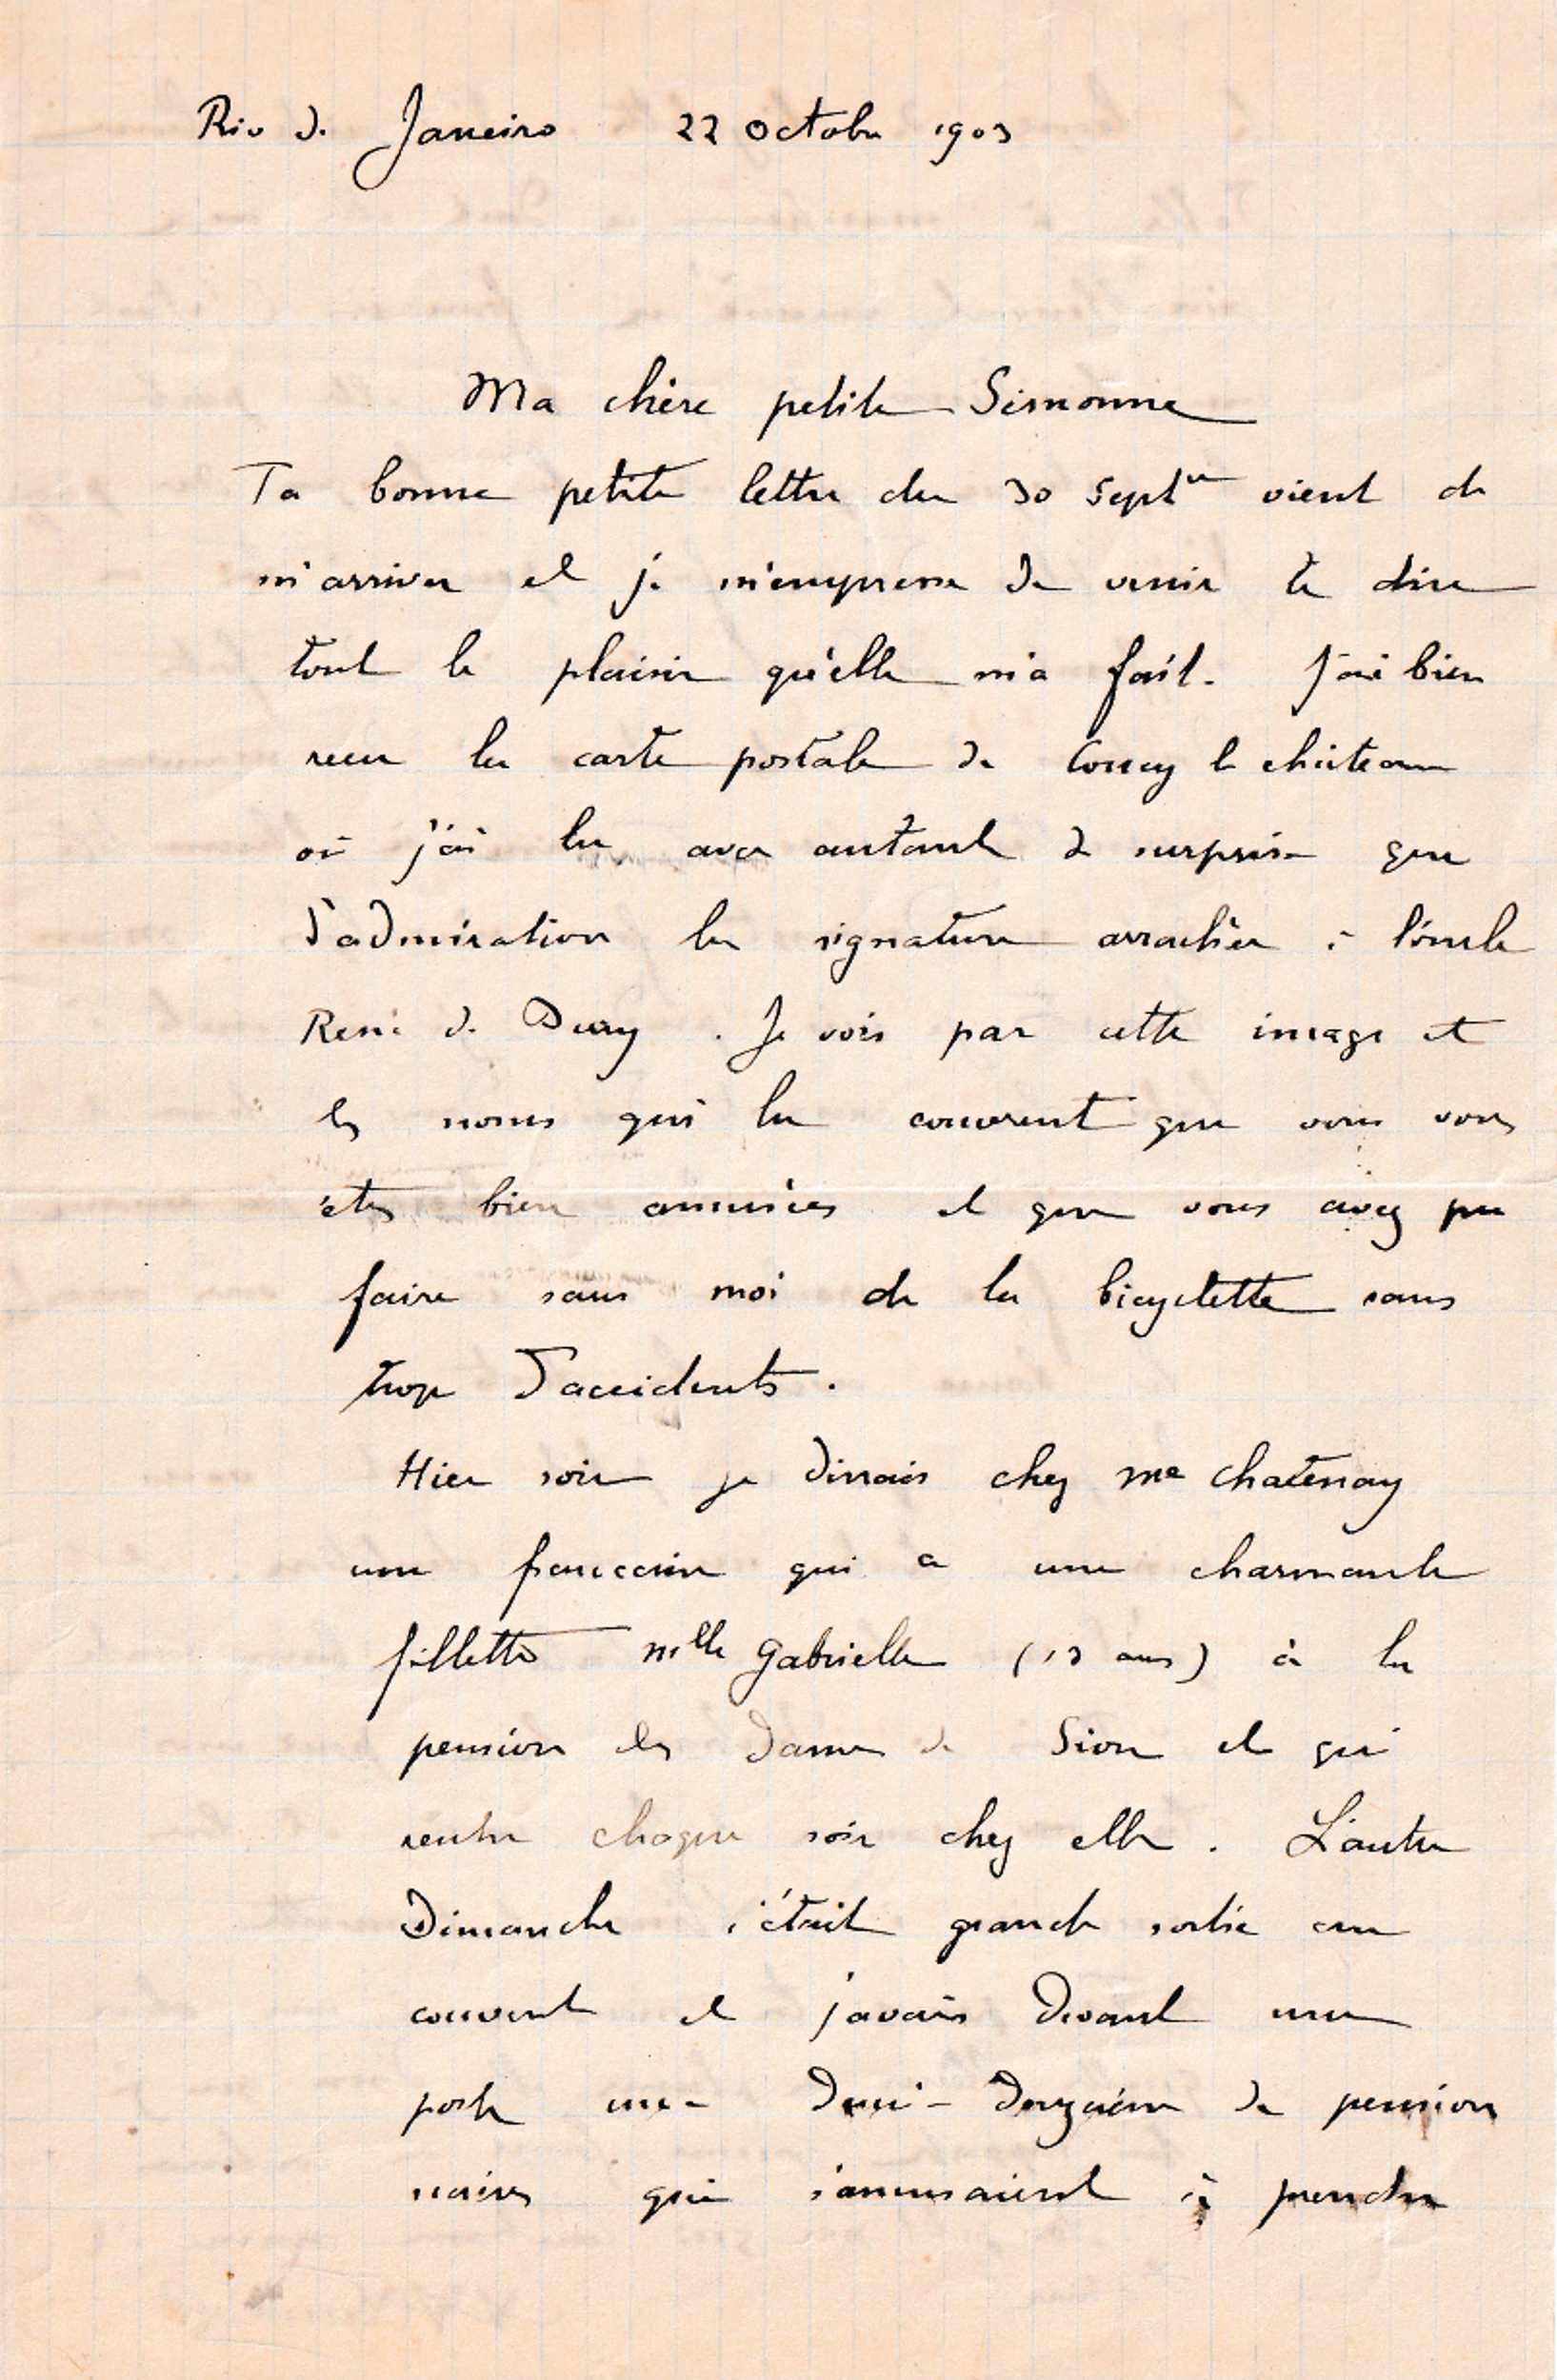 Rio d. Janeiro 22 octobre 1903
Ma chère petite Simonne
Ta bonne petite lettre du 30 septre vient de
m'arriver et je m'empresse de venir te dire
tout le plaisir qu'elle m'a fait. J'ai bien
reçu la carte postale de Coucy le château
où j'ai lu avec autant de surprise que
d'admiration la signature arrachée à l'oncle
René d. Dury. Je vois par cette image et
les noms qui la couvrent que vous vous
êtes bien amusées et que vous avez pu
faire sans moi de la bicyclette sans
trop d'accidents.
Hier soir je dinais chez Me Chatenay
une française qui a une charmante
fillette Mlle Gabrielle (13 ans) à la
pension des Dames de Sion et qui
rentre chaque soir chez elle. L'autre
Dimanche c'était grande sortie au
couvent et j'avais devant une
porte une demi-douzaine de pension
naires qui s'amusaient à prendre